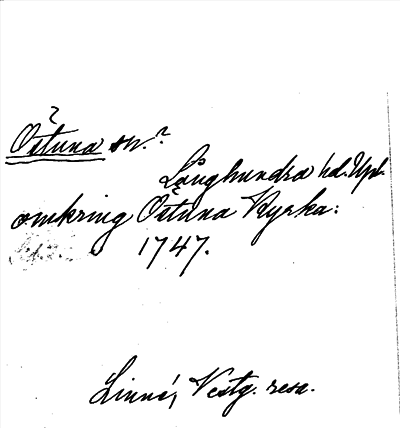 Östuna sn.?
Långhundra hd. Upl.
omkring Östuna Kyrka:
1747.
Linné, Vestg. resa.